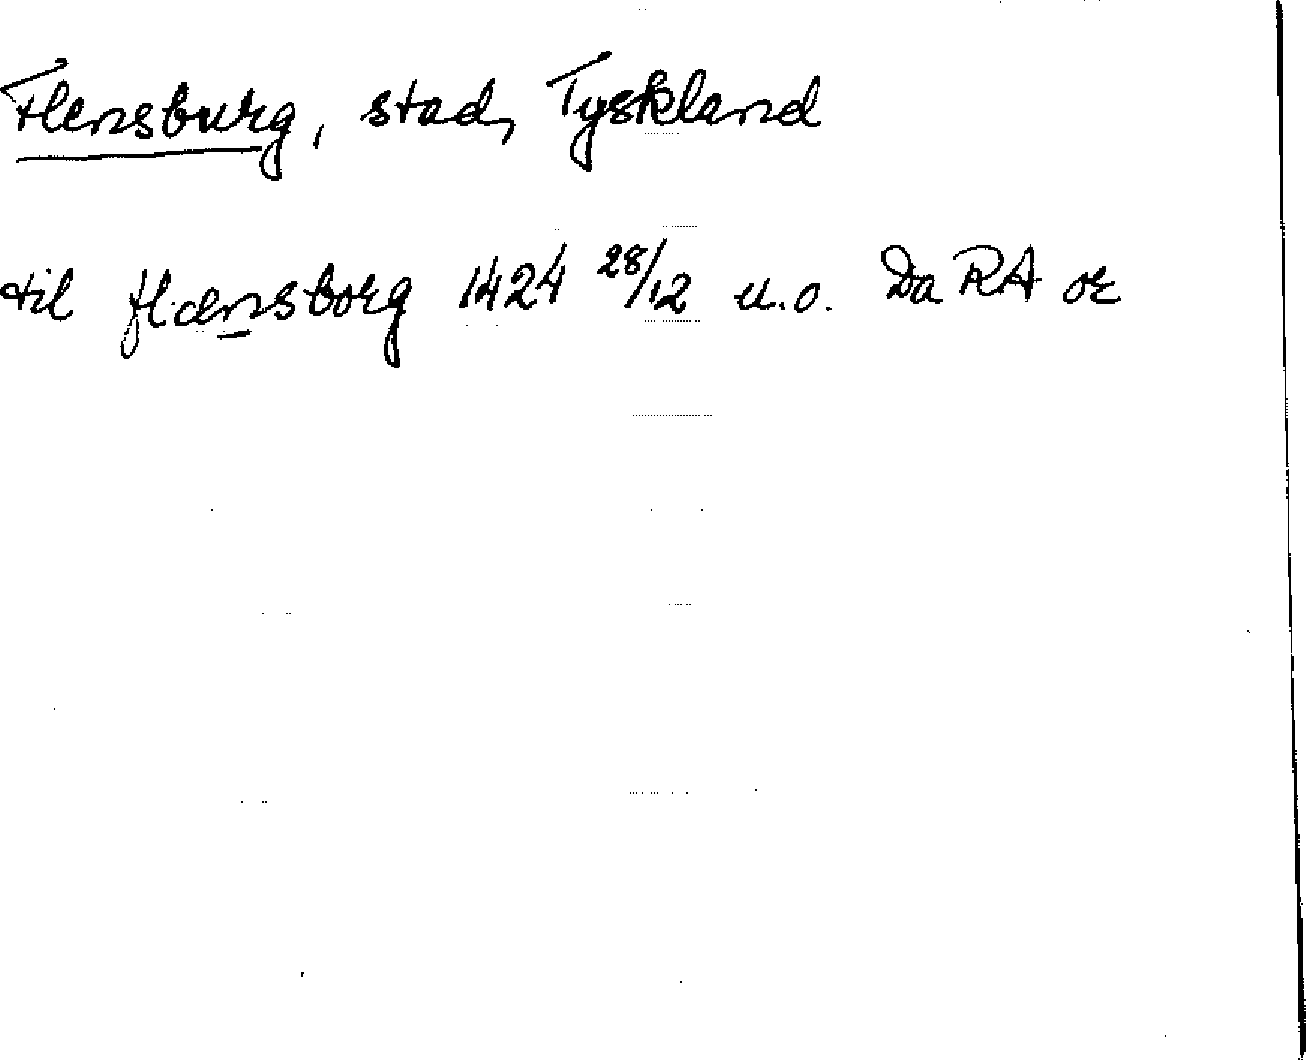 Flensburg, stad, Tyskland
til flænsborg 1424 28/12 u.o. Da RA or